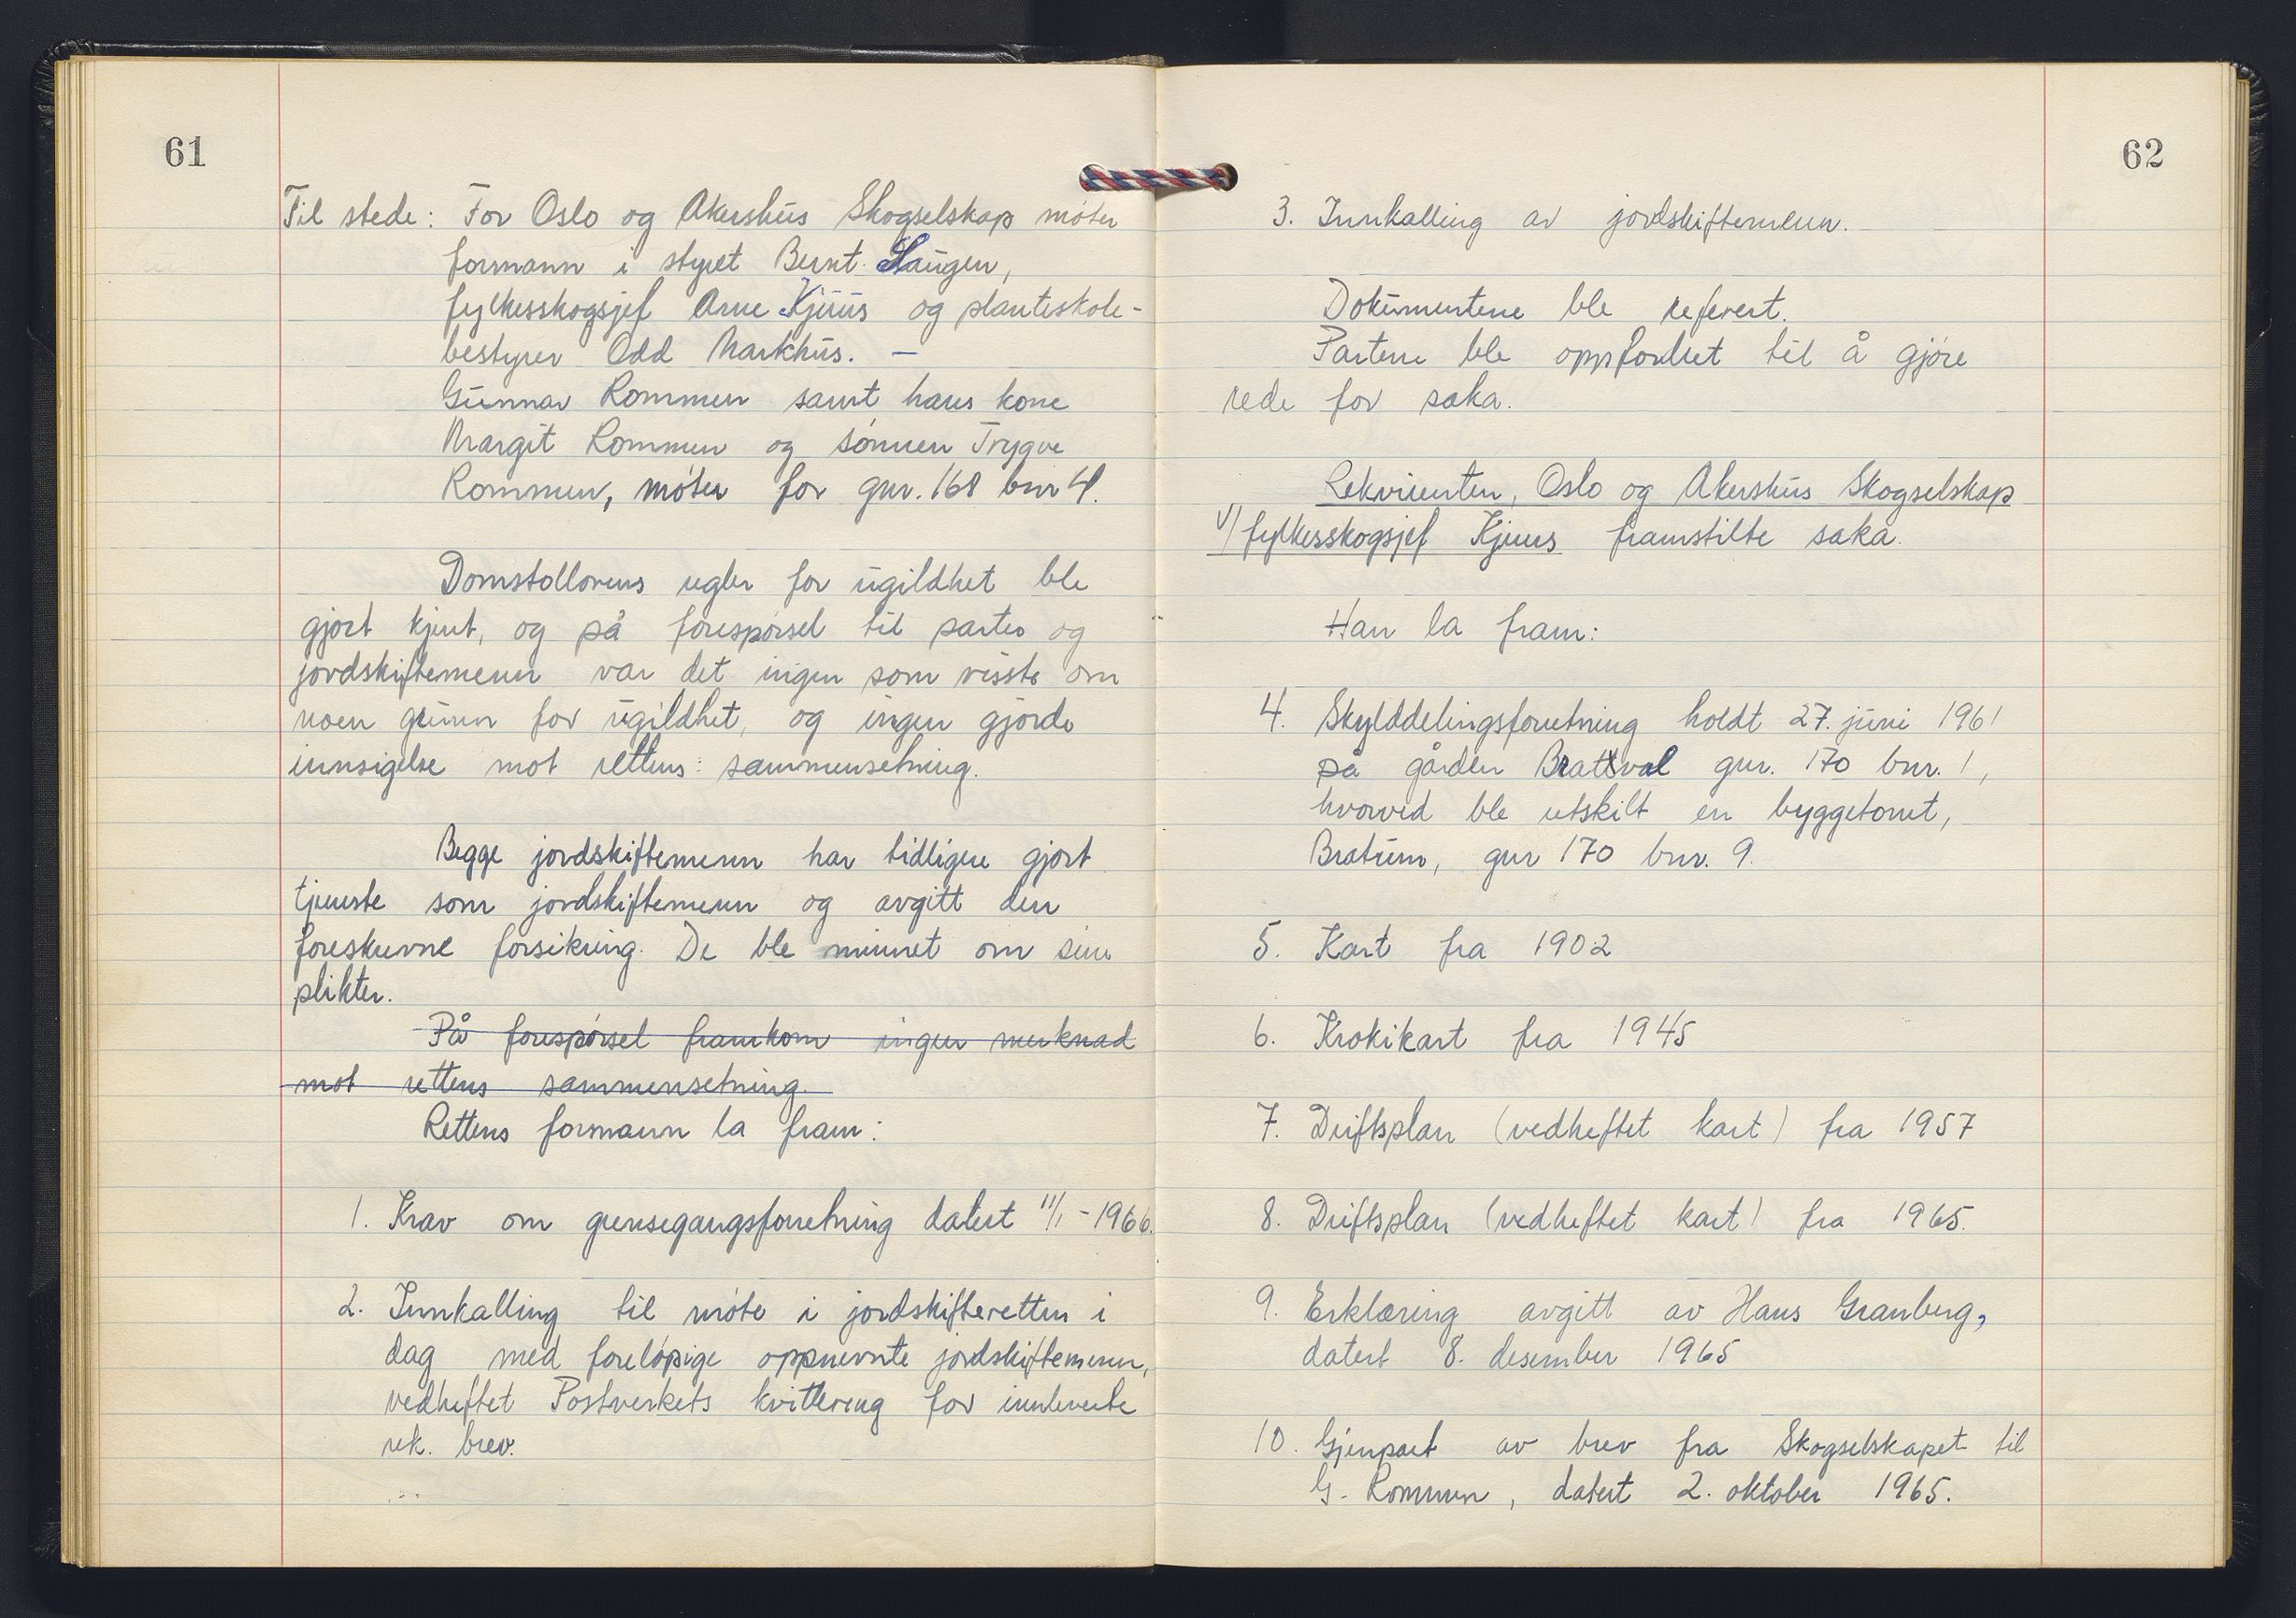 61
Til stede: For Oslo og Akershus Skogselskap møter
formann i styret Bernt Haugen,
fylkesskogsjef Arne Kjuus og planteskole-
bestyrer Odd Markhus. —
Gunnar Rommen samt hans kone
Margit Rommen og sønnen Trygve
Rommen, møter for gnr. 168 bnr 4.
Domstollovens regler for ugildhet ble
gjort kjent, og på forespørsel til parter og
jordskiftemenn var det ingen som visste om
noen grunn for ugildhet, og ingen gjorde
innsigelse mot rettens sammensetning.
Begge jordskiftemenn har tidligere gjort
tjeneste som jordskiftemenn og avgitt den
foreskrevne forsikring. De ble minnet om sine
plikter.
På forespørsel framkom ingen merknad
mot rettens sammensetning.
Rettens formann la fram:
1. Krav om grensegangsforretning datert 11/1 - 1966.
2. Innkalling til møte i jordskifteretten i
dag med foreløpige oppnevnte jordskiftemenn,
vedheftet Postverkets kvittering for innleverte
rek. brev.
62
3. Innkalling av jordskiftemenn.
Dokumentene ble referert.
Partene ble oppfordret til å gjøre
rede for saka.
Rekvirenten, Oslo og Akershus Skogselskap
v/ fylkesskogsjef Kjuus framstilte saka.
Han la fram:
4. Skylddelingsforretning holdt 27. juni 1961
på gården Brattval gnr. 170 bnr. 1,
hvorved ble utskilt en byggetomt,
Bratum, gnr 170 bnr. 9.
5. Kart fra 1902
6. Krokikart fra 1945
7. Driftsplan (vedheftet kart) fra 1957
8. Driftsplan (vedheftet kart) fra 1965.
9. Erklæring avgitt av Hans Granberg,
datert 8. desember 1965
10. Gjenpart av brev fra Skogselskapet til
G. Rommen, datert 2. oktober 1965.